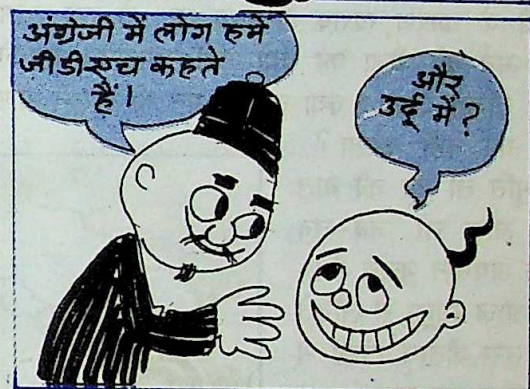 अंग्रेजी में लोग हमें
जीडीएच कहते
हैं।
और
उर्दू में?